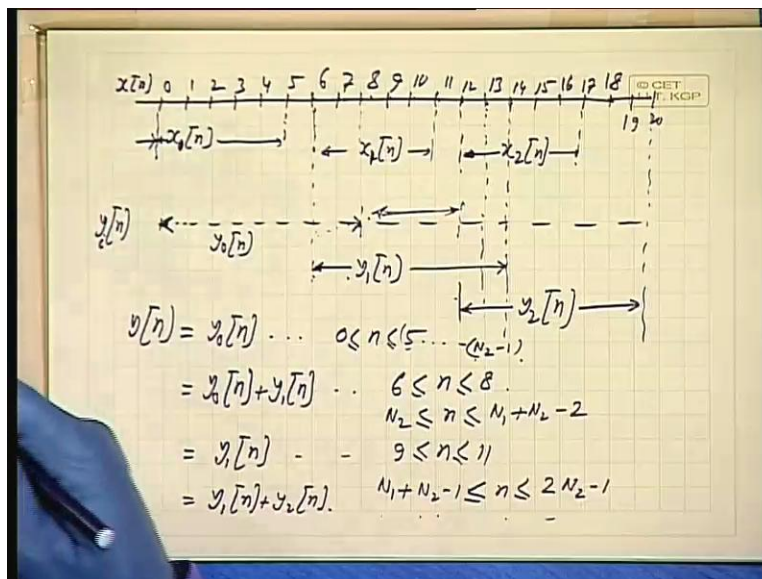 x[n] 0 1 2 3 4 5 6 7 8 9 10 11 12 13 14 15 16 17 18
19 20
© CET
I.T. KGP
x0[n] x1[n] x2[n]
y[n]
y0[n]
y1[n]
y2[n]
y[n] = y0[n] ... 0 ≤ n ≤ (5 ... (N2-1)
= y0[n]+y1[n] .. 6 ≤ n ≤ 8.
N2 ≤ n ≤ N1+N2-2
= y1[n] - - 9 ≤ n ≤ 11
= y1[n]+y2[n]. N1+N2-1 ≤ n ≤ 2N2-1